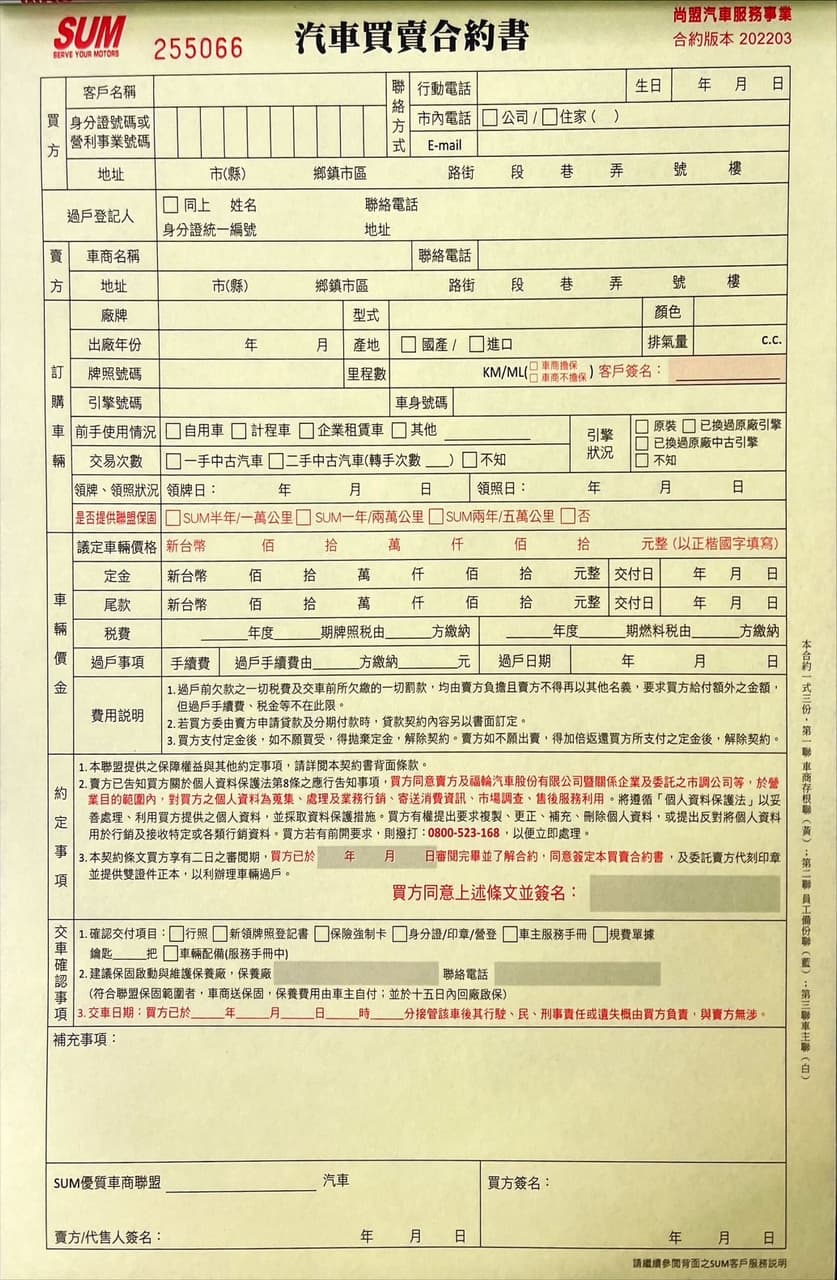 SUM
SERVE YOUR MOTORS
255066
汽車買賣合約書
尚盟汽車服務事業
合約版本 202203
買方
客戶名稱
聯絡方式
行動電話
生日 年 月 日
身分證號碼或
營利事業號碼
市內電話 □公司 / □住家 ( )
E-mail
地址 市(縣) 鄉鎮市區 路街 段 巷 弄 號 樓
過戶登記人
□ 同上 姓名 聯絡電話
身分證統一編號 地址
賣方
車商名稱 聯絡電話
地址 市(縣) 鄉鎮市區 路街 段 巷 弄 號 樓
訂購車輛
廠牌 型式 顏色
出廠年份 年 月 產地 □ 國產 / □ 進口 排氣量 c.c.
牌照號碼 里程數 KM/ML( □ 車商擔保 □ 車商不擔保 ) 客戶簽名：
引擎號碼 車身號碼
前手使用情況 □自用車 □計程車 □企業租賃車 □其他
引擎狀況
□原裝 □已換過原廠引擎
□已換過原廠中古引擎
□不知
交易次數 □一手中古汽車 □二手中古汽車(轉手次數 ___) □不知
領牌、領照狀況 領牌日： 年 月 日 領照日： 年 月 日
是否提供聯盟保固 □SUM半年/一萬公里 □SUM一年/兩萬公里 □SUM兩年/五萬公里 □否
車輛價金
議定車輛價格 新台幣 佰 拾 萬 仟 佰 拾 元整 (以正楷國字填寫)
定金 新台幣 佰 拾 萬 仟 佰 拾 元整 交付日 年 月 日
尾款 新台幣 佰 拾 萬 仟 佰 拾 元整 交付日 年 月 日
稅費 ______年度______期牌照稅由______方繳納 ______年度______期燃料稅由______方繳納
過戶事項 手續費 過戶手續費由______方繳納______元 過戶日期 年 月 日
費用說明
1.過戶前欠款之一切稅費及交車前所欠繳的一切罰款，均由賣方負擔且賣方不得再以其他名義，要求買方給付額外之金額，
但過戶手續費、稅金等不在此限。
2.若買方委由賣方申請貸款及分期付款時，貸款契約內容另以書面訂定。
3.買方支付定金後，如不願買受，得拋棄定金，解除契約。賣方如不願出賣，得加倍返還買方所支付之定金後，解除契約。
約定事項
1.本聯盟提供之保障權益與其他約定事項，請詳閱本契約書背面條款。
2.賣方已告知買方關於個人資料保護法第8條之應行告知事項，買方同意賣方及福輪汽車股份有限公司暨關係企業及委託之市調公司等，於營
業目的範圍內，對買方之個人資料為蒐集、處理及業務行銷、寄送消費資訊、市場調查、售後服務利用。將遵循「個人資料保護法」以妥
善處理、利用買方提供之個人資料，並採取資料保護措施。買方有權提出要求複製、更正、補充、刪除個人資料，或提出反對將個人資料
用於行銷及接收特定或各類行銷資料。買方若有前開要求，則撥打：0800-523-168，以便立即處理。
3.本契約條文買方享有二日之審閱期，買方已於 年 月 日審閱完畢並了解合約，同意簽定本買賣合約書，及委託賣方代刻印章
並提供雙證件正本，以利辦理車輛過戶。
買方同意上述條文並簽名：
交車確認事項
1.確認交付項目：□行照 □新領牌照登記書 □保險強制卡 □身分證/印章/營登 □車主服務手冊 □規費單據
鑰匙_____把 □車輛配備(服務手冊中)
2.建議保固啟動與維護保養廠，保養廠 聯絡電話
(符合聯盟保固範圍者，車商送保固，保養費用由車主自付；並於十五日內回廠啟保)
3.交車日期：買方已於_____年_____月_____日_____時_____分接管該車後其行駛、民、刑事責任或遺失概由買方負責，與賣方無涉。
補充事項：
SUM優質車商聯盟 ______________ 汽車
賣方/代售人簽名： 年 月 日
買方簽名：
年 月 日
本合約一式三份，第一聯 車商存根聯(黃)；第二聯 員工備份聯(藍)；第三聯車主聯(白)
請繼續參閱背面之SUM客戶服務說明